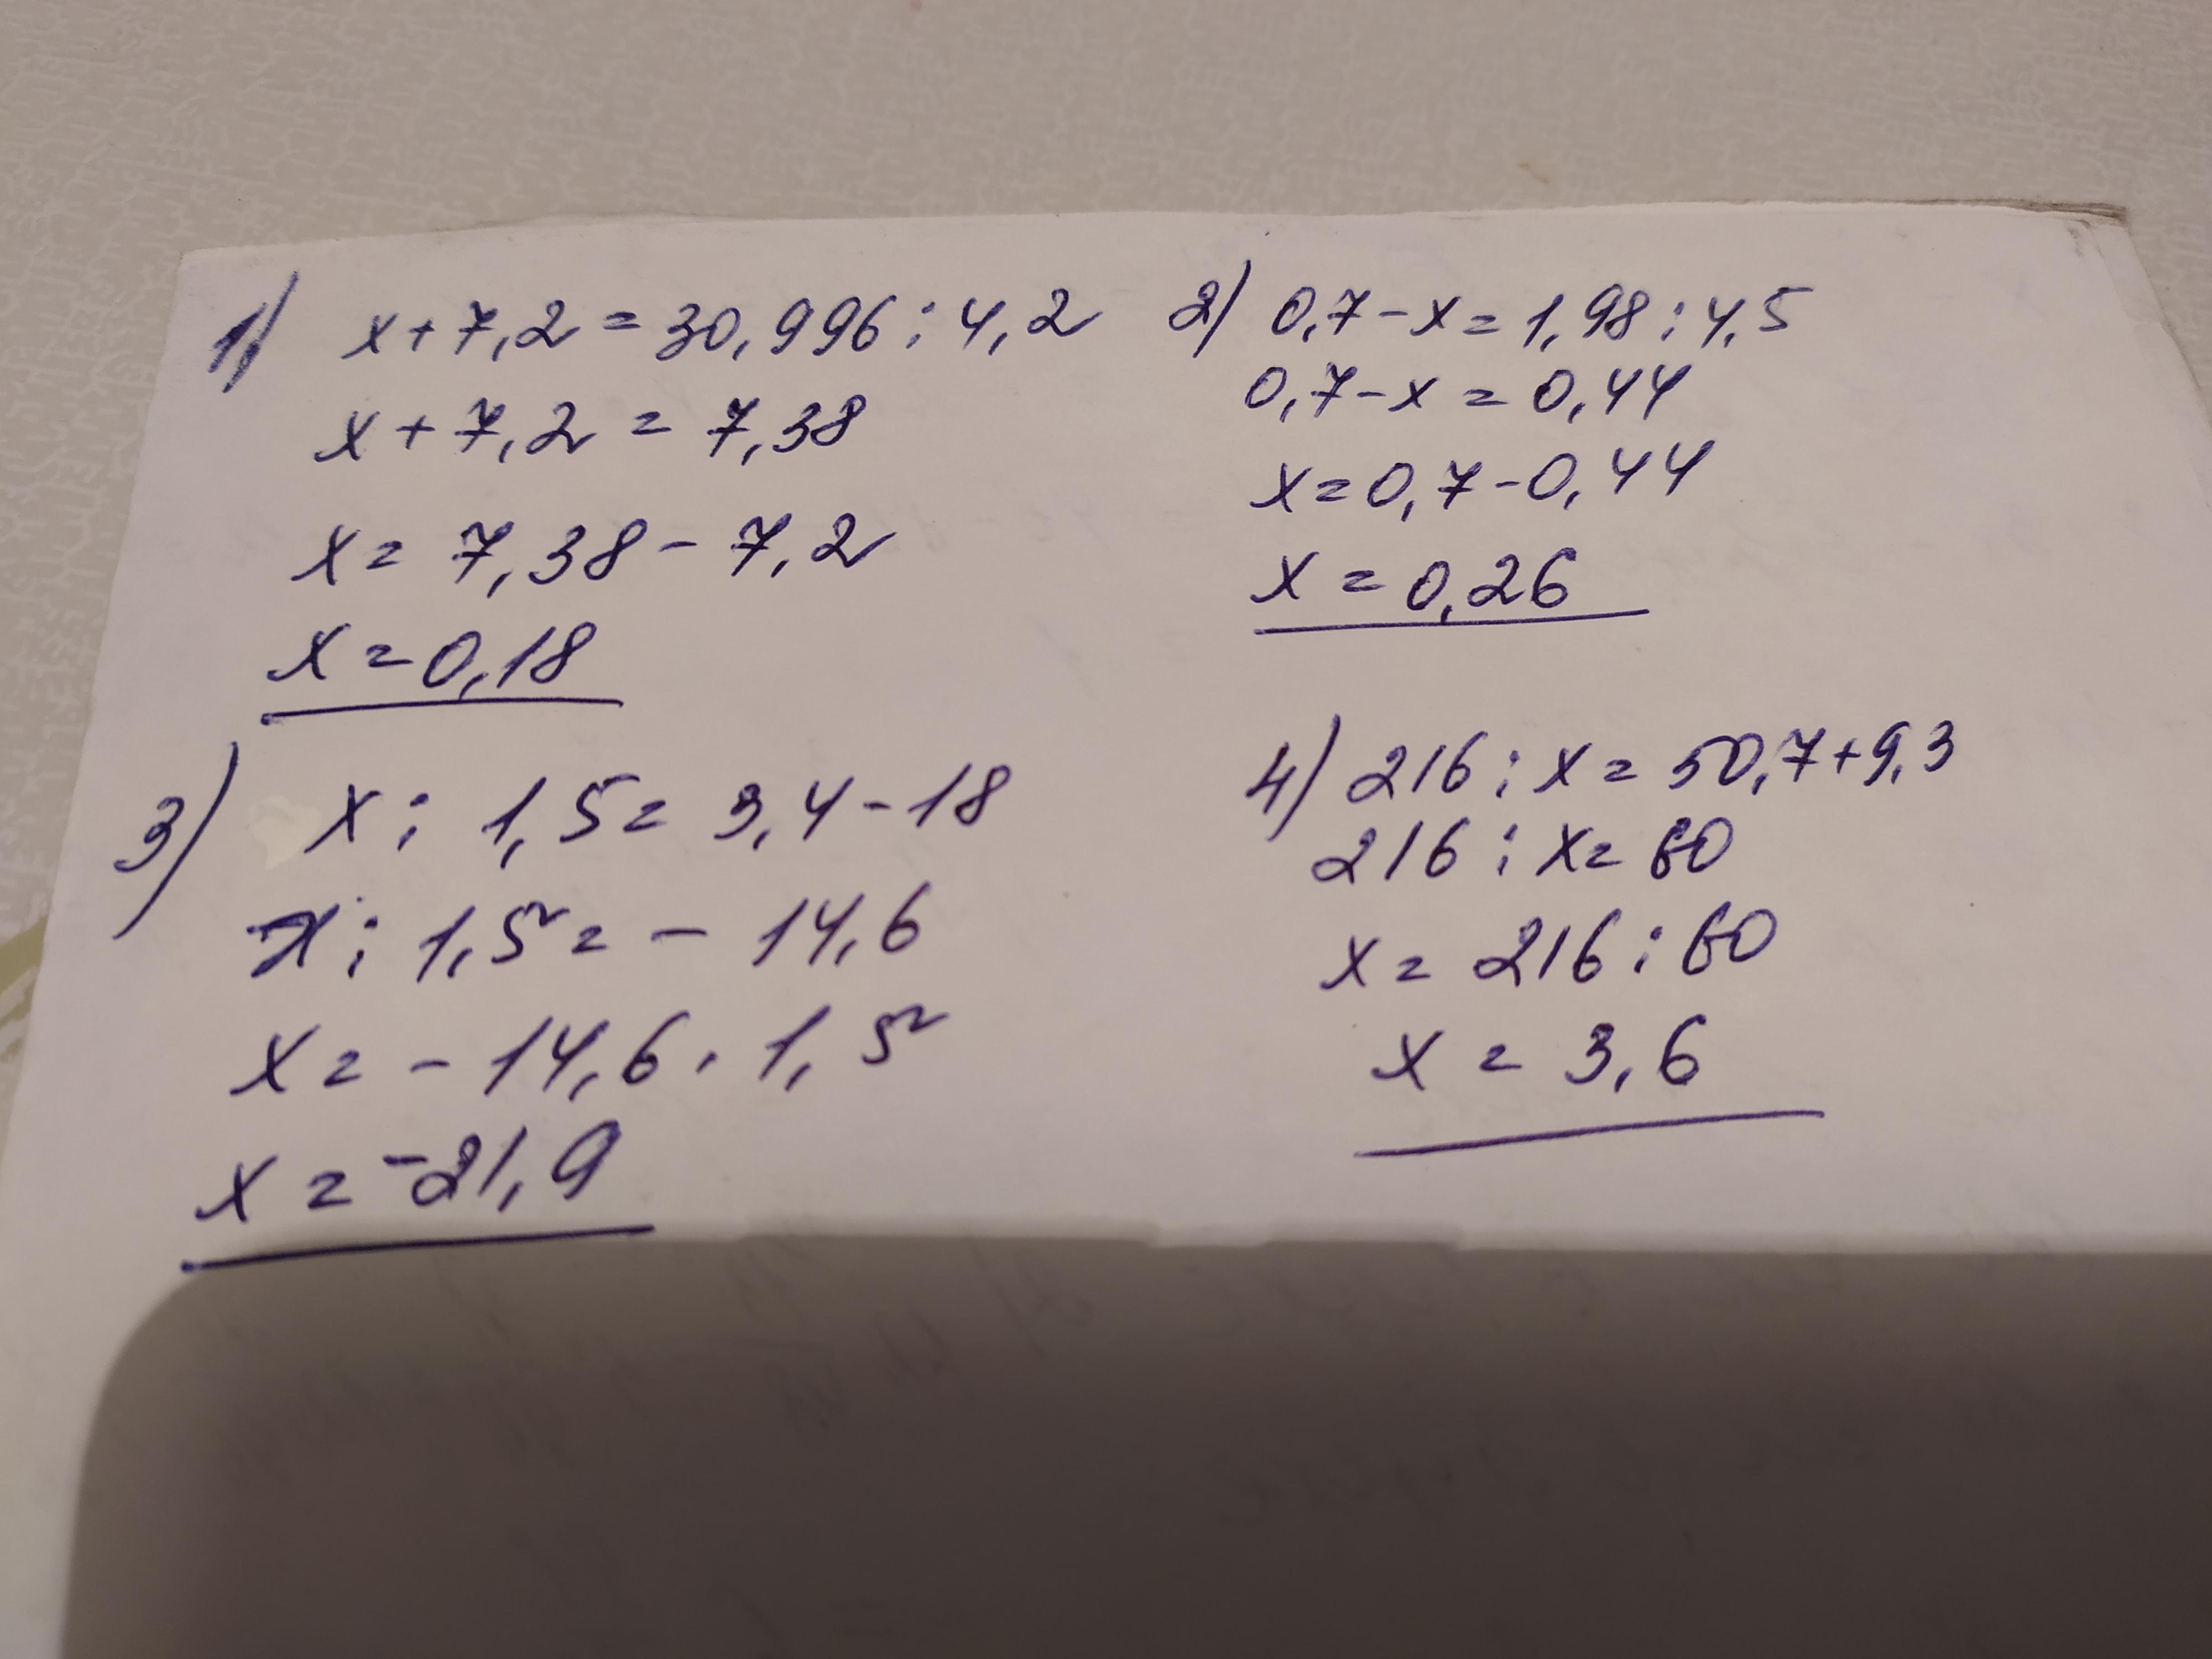 1) x+7,2=30,996:4,2
x+7,2=7,38
x=7,38-7,2
x=0,18
2) 0,7-x=1,98:4,5
0,7-x=0,44
x=0,7-0,44
x=0,26
3) x:1,5=3,4-18
x:1,5=-14,6
x=-14,6·1,5
x=-21,9
4) 216:x=50,7+9,3
216:x=60
x=216:60
x=3,6